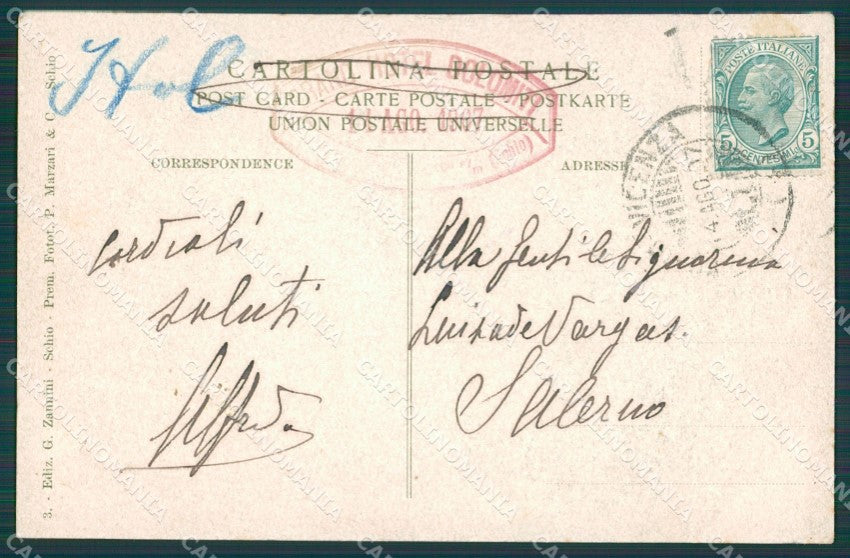 CARTOLINA POSTALE
POST CARD - CARTE POSTALE - POSTKARTE
UNION POSTALE UNIVERSELLE
CORRESPONDENCE
ADRESSE
POSTE ITALIANE
5 CENTESIMI 5
VICENZA
AGO.
(Schio)
Cordiali
saluti
Alfredo
Alla Gentile Signorina
Luisa de Vargas.
Salerno
3. - Ediz. G. Zannini - Schio - Prem. Fotot. P. Marzari & C. - Schio
CARTOLINOMANIA